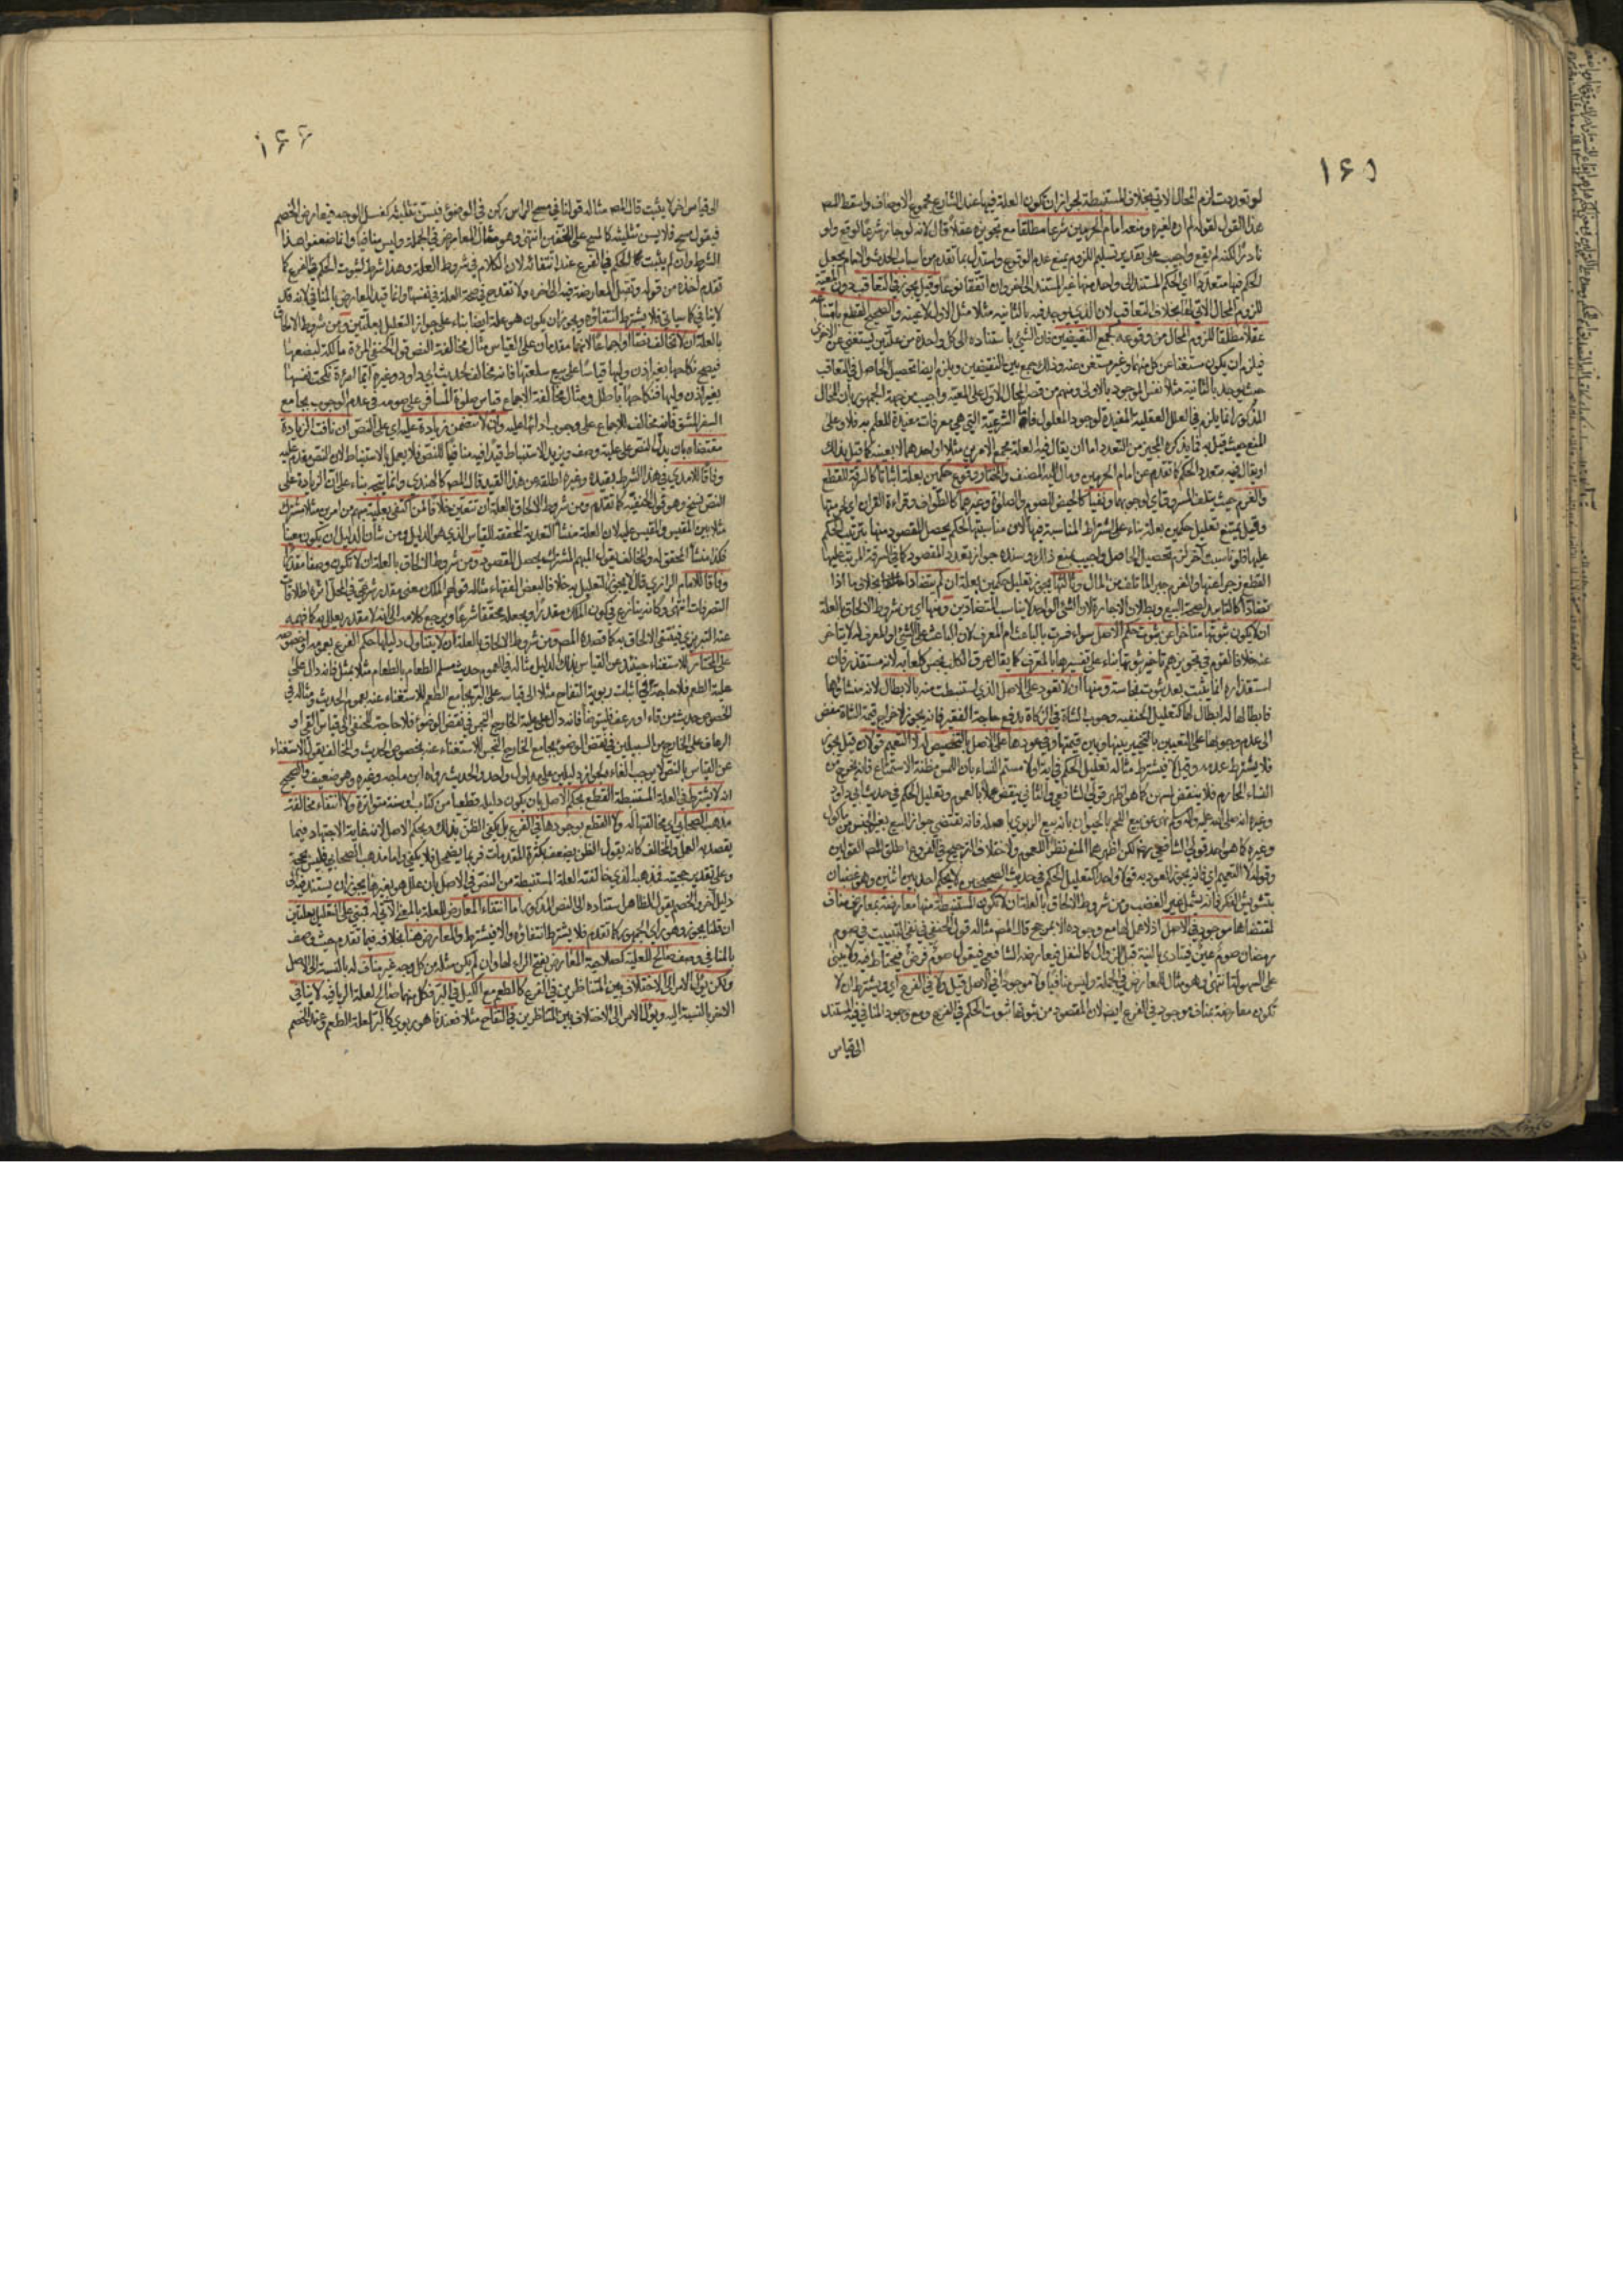 ١٦٥
لو تعددت لزم المحال الاتي بخلاف المستنبطة لجواز ان تكون العلة فيها عند الشارع مجموع الاوصاف واسقط المص
هذا القول لقوله لم اره لغيره ومنعه امام الحرمين شرعا مطلقا مع تجويزه عقلا قال لانه لو جاز شرعا لوقع ولو
نادرا لكنه لم يقع واجيب على تقدير تسليم اللزوم بمنع عدم الوقوع واستدل بما تقدم من اسباب الحدث والامام يجعل
الحكم فيها متعددا اي الحكم المستند الى واحد منها غير المستند الى اخر وان اتفقا نوعا وقيل يجوز في التعاقب دون المعية
للزوم المحال الاتي لها بخلاف التعاقب لان الذي يوجد فيه بالثانية مثلا مثل الاول لا عينه والصحيح القطع بامتناعه
عقلا مطلقا للزوم المحال من وقوعه كجمع النقيضين فان الشيء باستناده الى كل واحدة من علتين يستغني عن الاخرى
فيلزم ان يكون مستغنيا عن كل منهما وغير مستغن عنه وذلك جمع بين النقيضين ويلزم ايضا تحصيل الحاصل في التعاقب
حيث يوجد بالثانية مثلا نفس الموجود بالاولى ومنهم من قصر المحال الاول على المعية واجيب من جهة الجمهور بان المحال
المذكور انما يلزم في العلل العقلية المفيدة لوجود المعلول فاما الشرعية التي هي معرفات مفيدة للعلم به فلا وعلى
المنع حيث قيل به فما يذكره المجيز من التعدد اما ان يقال فيه العلة مجموع الامرين مثلا او احدهما لا بعينه كما قيل بذلك
او يقال فيه متعدد الحكم كما تقدم عن امام الحرمين ومال اليه المصنف والمختار وقوع حكمين بعلة اثباتا كالسرقة للقطع
والغرم حيث يتلف المسروق اي لوجوبهما ونفيا كالحيض للصوم والصلوة وغيرهما كالطواف وقراءة القران اي لحرمتها
وقيل يمتنع تعليل حكمين بعلة بناء على اشتراط المناسبة فيها لان مناسبتها لحكم يحصل المقصود منها بترتب الحكم
عليها فلو ناسبت اخر لزم تحصيل الحاصل واجيب بمنع ذلك وسنده جواز تعدد المقصود كما في السرقة المرتب عليها
القطع زجرا عنها والغرم جبرا لما تلف من المال وثالثها يجوز تعليل حكمين بعلة ان لم يتضادا بخلاف ما اذا
تضادا كالتابيد لصحة البيع وبطلان الاجارة لان الشيء الواحد لا يناسب المتضادين ومنها اي من شروط الالحاق بالعلة
ان لا يكون ثبوتها متاخرا عن ثبوت حكم الاصل سواء فسرت بالباعث ام المعرف لان الباعث على الشيء او المعرف له لا يتاخر
عنه خلافا لقوم في تجويزهم تاخر ثبوتها بناء على تفسيرها بالمعرف كما يقال عرق الكلب نجس كلعابه لانه مستقذر فان
استقذاره انما يثبت بعد ثبوت نجاسته ومنها ان لا تعود على الاصل الذي استنبطت منه بالابطال لانه منشاؤها
فابطالها له ابطال لها كتعليل الحنفية وجوب الشاة في الزكاة بدفع حاجة الفقير فانه يجوز لاخراج قيمة الشاة مفض
الى عدم وجوبها على التعيين بالتخيير بينها وبين قيمتها وفي عودها على الاصل بالتخصيص له لا التعميم قولان قيل يجوز
فلا يشترط عدمه وقيل لا فيشترط مثاله تعليل الحكم في اية او لامستم النساء بان اللمس مظنة الاستمتاع فانه يخرج من
النساء المحارم فلا ينقض لمسهن كما هو اظهر قولي الشافعي والثاني ينقض عملا بالعموم وتعليل الحكم في حديث ابي داود
وغيره انه صلى الله عليه واله وسلم نهى عن بيع اللحم بالحيوان بانه بيع الربوي باصله فانه يقتضي جواز البيع بغير الجنس من ماكول
وغيره كما هو احد قولي الشافعي رضي لكن اظهرهما المنع نظرا للعموم ولاختلاف الترجيح في الفروع اطلق المص القولين
وقوله لا التعميم اي فانه يجوز العود به قولا واحدا كتعليل الحكم في حديث الصحيحين لا يحكم احد بين اثنين وهو غضبان
بتشويش الفكر فانه يشمل غير الغضب ومن شروط الالحاق بالعلة ان لا تكون المستنبطة منها معارضة بمعارض مناف
لمقتضاها موجود في الاصل اذ لا عمل لها مع وجوده الا بمرجح قال المص مثاله قول الحنفي في نفي التبييت في صوم
رمضان صوم عين فيتادى بالنية قبل الزوال كالنفل فيعارضه الشافعي فيقول صوم فرض فيحتاط فيه ولا يبنى
على السهولة انتهى وهو مثال للمعارض في الجملة وليس منافيا ولا موجودا في الاصل قيل ولا في الفرع اي ويشترط ان لا
تكون معارضة بمناف موجود في الفرع ايضا لان المقصود من ثبوتها ثبوت الحكم في الفرع ومع وجود المنافي فيه المستند
الى قياس
١٦٦
الى قياس اخر لا يثبت قال المص مثاله قولنا في مسح الراس ركن في الوضوء فيسن تثليثه كغسل الوجه فيعارض الخصم
فيقول مسح فلا يسن تثليثه كالمسح على الخفين انتهى وهو مثال للمعارض في الجملة وليس منافيا وانما ضعفوا هذا
الشرط وان لم يثبت الحكم في الفرع عند انتفائه لان الكلام في شروط العلة وهذا شرط لثبوت الحكم في الفرع كما
تقدم اخذه من قوله وتقبل المعارضة فيه الى اخره ولا تقدح في صحة العلة في نفسها وانما قيد المعارض بالمنافي لانه قد
لا ينافي كما سياتي فلا يشترط انتفاؤه ويجوز ان يكون هو علة ايضا بناء على جواز التعليل بعلتين ومن شروط الالحاق
بالعلة ان لا تخالف نصا او اجماعا لانهما مقدمان على القياس مثال مخالفة النص قول الحنفي المراة مالكة لبضعها
فيصح نكاحها بغير اذن وليها قياسا على بيع سلعتها فانه مخالف لحديث ابي داود وغيره ايما امراة نكحت نفسها
بغير اذن وليها فنكاحها باطل ومثال مخالفة الاجماع قياس صلوة المسافر على صومه في عدم الوجوب بجامع
السفر المشق فانه مخالف للاجماع على وجوب ادائها عليه وان لا تتضمن زيادة عليه اي على النص ان نافت الزيادة
مقتضاه بان يدل النص على علية وصف ويزيد الاستنباط قيدا فيه منافيا للنص فلا يعمل بالاستنباط لان النص مقدم عليه
وفاقا للامدي في هذا الشرط بقيده وغيره اطلقه عن هذا القيد قال المص كالهندي وانما يتجه بناء على ان الزيادة على
النص نسخ وهو قول الحنفية كما تقدم ومن شروط الالحاق بالعلة ان تتعين خلافا لمن اكتفى بعلية مبهم من امرين مثلا مشترك
مثلا بين المقيس والمقيس عليه لان العلة منشا التعدية المحققة للقياس الذي هو الدليل ومن شان الدليل ان يكون معينا
فكذا منشا المحقق له والمخالف يقول المبهم المشترك يحصل المقصود ومن شروط الالحاق بالعلة ان لا تكون وصفا مقدرا
وفاقا للامام الرازي قال لا يجوز التعليل به خلافا لبعض الفقهاء مثاله قولهم الملك معنى مقدر شرعي في المحل اثره اطلاق
التصرفات انتهى وكانه ينازع في كون الملك مقدرا ويجعله محققا شرعا ويرجع كلامه الى انه لا مقدر يعلل به كما فهمه
عنه التبريزي فينتفي الالحاق به كما قصده المص ومن شروط الالحاق بالعلة ان لا يتناول دليلها حكم الفرع بعمومه او خصوصه
على المختار للاستغناء حينئذ عن القياس بذلك الدليل مثاله في العموم حديث مسلم الطعام بالطعام مثلا بمثل فانه دال على
علية الطعم فلا حاجة في اثبات ربوية التفاح مثلا الى قياسه على البر بجامع الطعم للاستغناء عنه بعموم الحديث ومثاله في
الخصوص حديث من قاء او رعف فليتوضأ فانه دال على علية الخارج النجس في نقض الوضوء فلا حاجة للحنفي الى قياس القي او
الرعاف على الخارج من السبيلين في نقض الوضوء بجامع الخارج النجس للاستغناء عنه بخصوص الحديث والمخالف يقول الاستغناء
عن القياس بالنص لا يوجب الغاءه لجواز دليلين على مدلول واحد والحديث رواه ابن ماجه وغيره وهو ضعيف والصحيح
انه لا يشترط في العلة المستنبطة القطع بحكم الاصل بان يكون دليله قطعيا من كتاب او سنة متواترة ولا انتفاء مخالفة
مذهب الصحابي اي مخالفتها له ولا القطع بوجودها في الفرع بل يكفي الظن بذلك وبحكم الاصل لانه غاية الاجتهاد فيما
يقصد به العمل والمخالف كانه يقول الظن يضعف بكثرة المقدمات فربما يضمحل فلا يكفي واما مذهب الصحابي فليس بحجة
وعلى تقدير حجيته فمذهبه الذي خالفته العلة المستنبطة من النص في الاصل بان علل هو بغيرها يجوز ان يستند فيه الى
دليل اخر والخصم يقول الظاهر استناده الى النص المذكور اما انتفاء المعارض للعلة بالمعنى الاتي له فمبني على التعليل بعلتين
ان قلنا يجوز وهو راي الجمهور كما تقدم فلا يشترط انتفاؤه والا فيشترط والمعارض هنا بخلافه فيما تقدم حيث وصف
بالمنافي وصف صالح للعلية كصلاحية المعارض بفتح الراء لها وان لم يكن مثله من كل وجه غير مناف له بالنسبة الى الاصل
ولكن يؤل الامر الى الاختلاف بين المتناظرين في الفرع كالطعم مع الكيل في البر فكل منهما صالح لعلة الربا فيه لا ينافي
الاخر بالنسبة اليه ويؤل الامر الى الاختلاف بين المتناظرين في التفاح مثلا فعندنا هو ربوي كالبر لعلة الطعم وعند الخصم